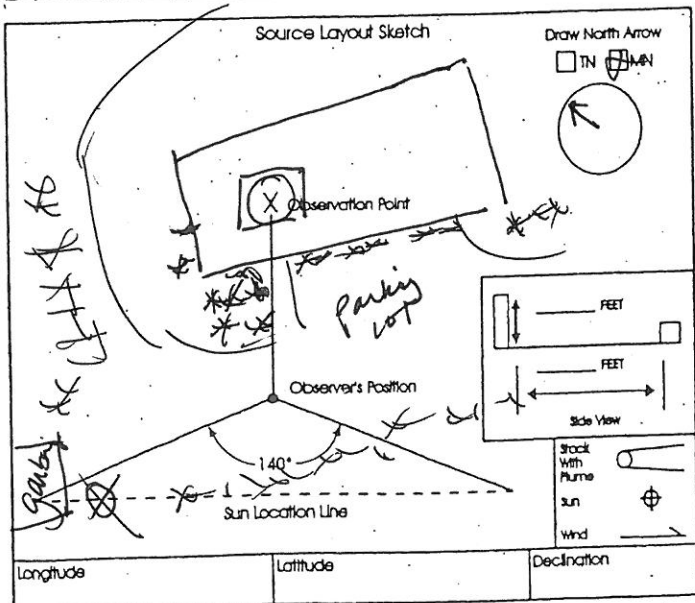 Source Layout Sketch
Draw North Arrow
TN MN
X Observation Point
Parking
LOT
FEET
FEET
Side View
Observer's Position
140°
Sun Location Line
Stack
With
Plume
Sun
Wind
Longitude
Latitude
Declination